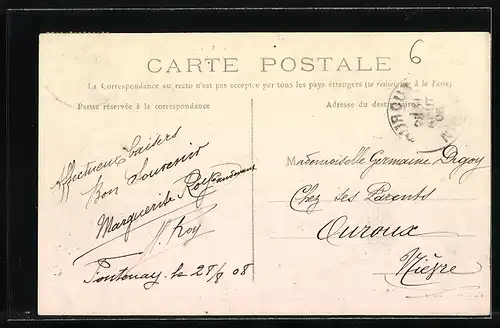 6
CARTE POSTALE
La Correspondance au recto n'est pas acceptée par tous les pays étrangers (se renseigner à la Poste)
Partie réservée à la correspondance
Adresse du destinataire
Affectueux baisers
Bon Souvenir
Marguerite Roy
Roy
Fontenay, le 28/8 08
Mademoiselle Germaine
Chez ses Parents
Ouroux
Nièvre